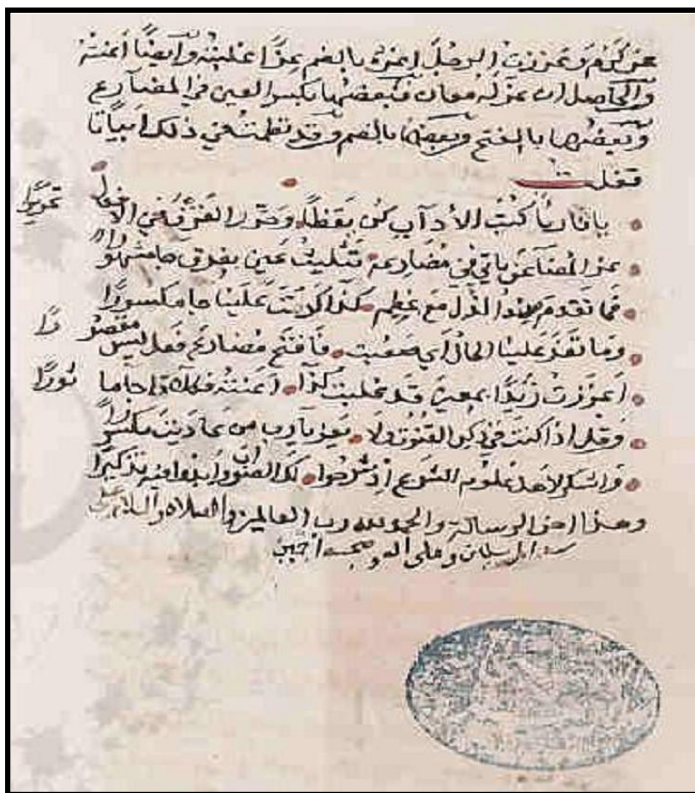 عز كرم وعززت الرجل اعزه بالضم عزا غلبته وأيضا اعنته
والحاصل ان عز له معان فبعضها بكسر العين في المضارع
وبعضها بالفتح وبعضها بالضم وقد نظمت في ذلك ابياتا
فقلت
يا قاريا كتب الادآب كن يقظا وحرر الفرق في الافعال تحريرا
عز المضاعف ياتي في مضارعه تثليث عين بفرق جا مشهورا
فما تقدم ضد الذل مع عظم كذا كرمت علينا جا مكسورا
وما تعز علينا الحال اي صعبت فافتح مضارع فعل ليس مقصورا
اعززت زيدا بمعنى قد غلبت كذا اعنته فكلا ذا جا ماثورا
وقل اذا كنت في ذكر القنوت ولا يعز يا رب من عاديت مكسورا
واشكر لاهل علوم الشرع اذ شرحوا لك الصواب وابدوا فيه تذكيرا
وهذا اخر الرسالة والحمد لله رب العالمين والصلاة والسلام على
سيد المرسلين وعلى اله وصحبه اجمعين